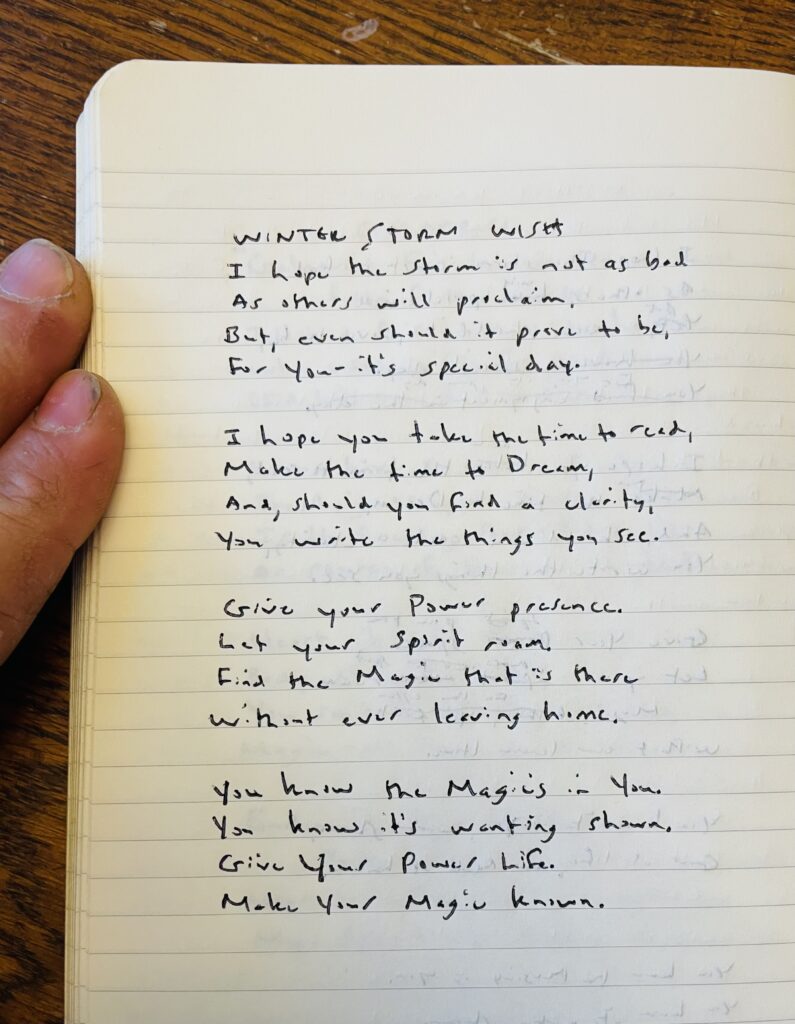 WINTER STORM WISH
I hope the storm is not as bad
As others will proclaim,
But, even should it prove to be,
For you - it's special day.
I hope you take the time to read,
Make the time to Dream,
And, should you find a clarity,
You write the things you see.
Give your Power presence.
Let your Spirit roam.
Find the Magic that is there
Without ever leaving home.
You know the Magic is in You.
You know it's wanting shown.
Give Your Power Life.
Make Your Magic known.